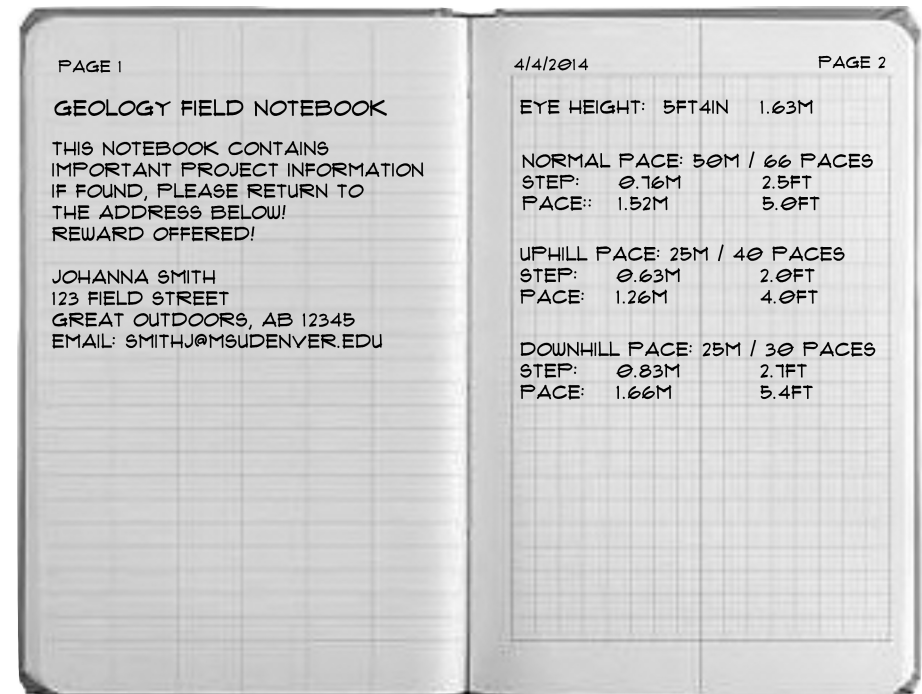 PAGE 1
GEOLOGY FIELD NOTEBOOK
THIS NOTEBOOK CONTAINS
IMPORTANT PROJECT INFORMATION
IF FOUND, PLEASE RETURN TO
THE ADDRESS BELOW!
REWARD OFFERED!
JOHANNA SMITH
123 FIELD STREET
GREAT OUTDOORS, AB 12345
EMAIL: SMITHJ@MSUDENVER.EDU
4/4/2014 PAGE 2
EYE HEIGHT: 5FT4IN 1.63M
NORMAL PACE: 50M / 66 PACES
STEP: 0.76M 2.5FT
PACE:: 1.52M 5.0FT
UPHILL PACE: 25M / 40 PACES
STEP: 0.63M 2.0FT
PACE: 1.26M 4.0FT
DOWNHILL PACE: 25M / 30 PACES
STEP: 0.83M 2.7FT
PACE: 1.66M 5.4FT